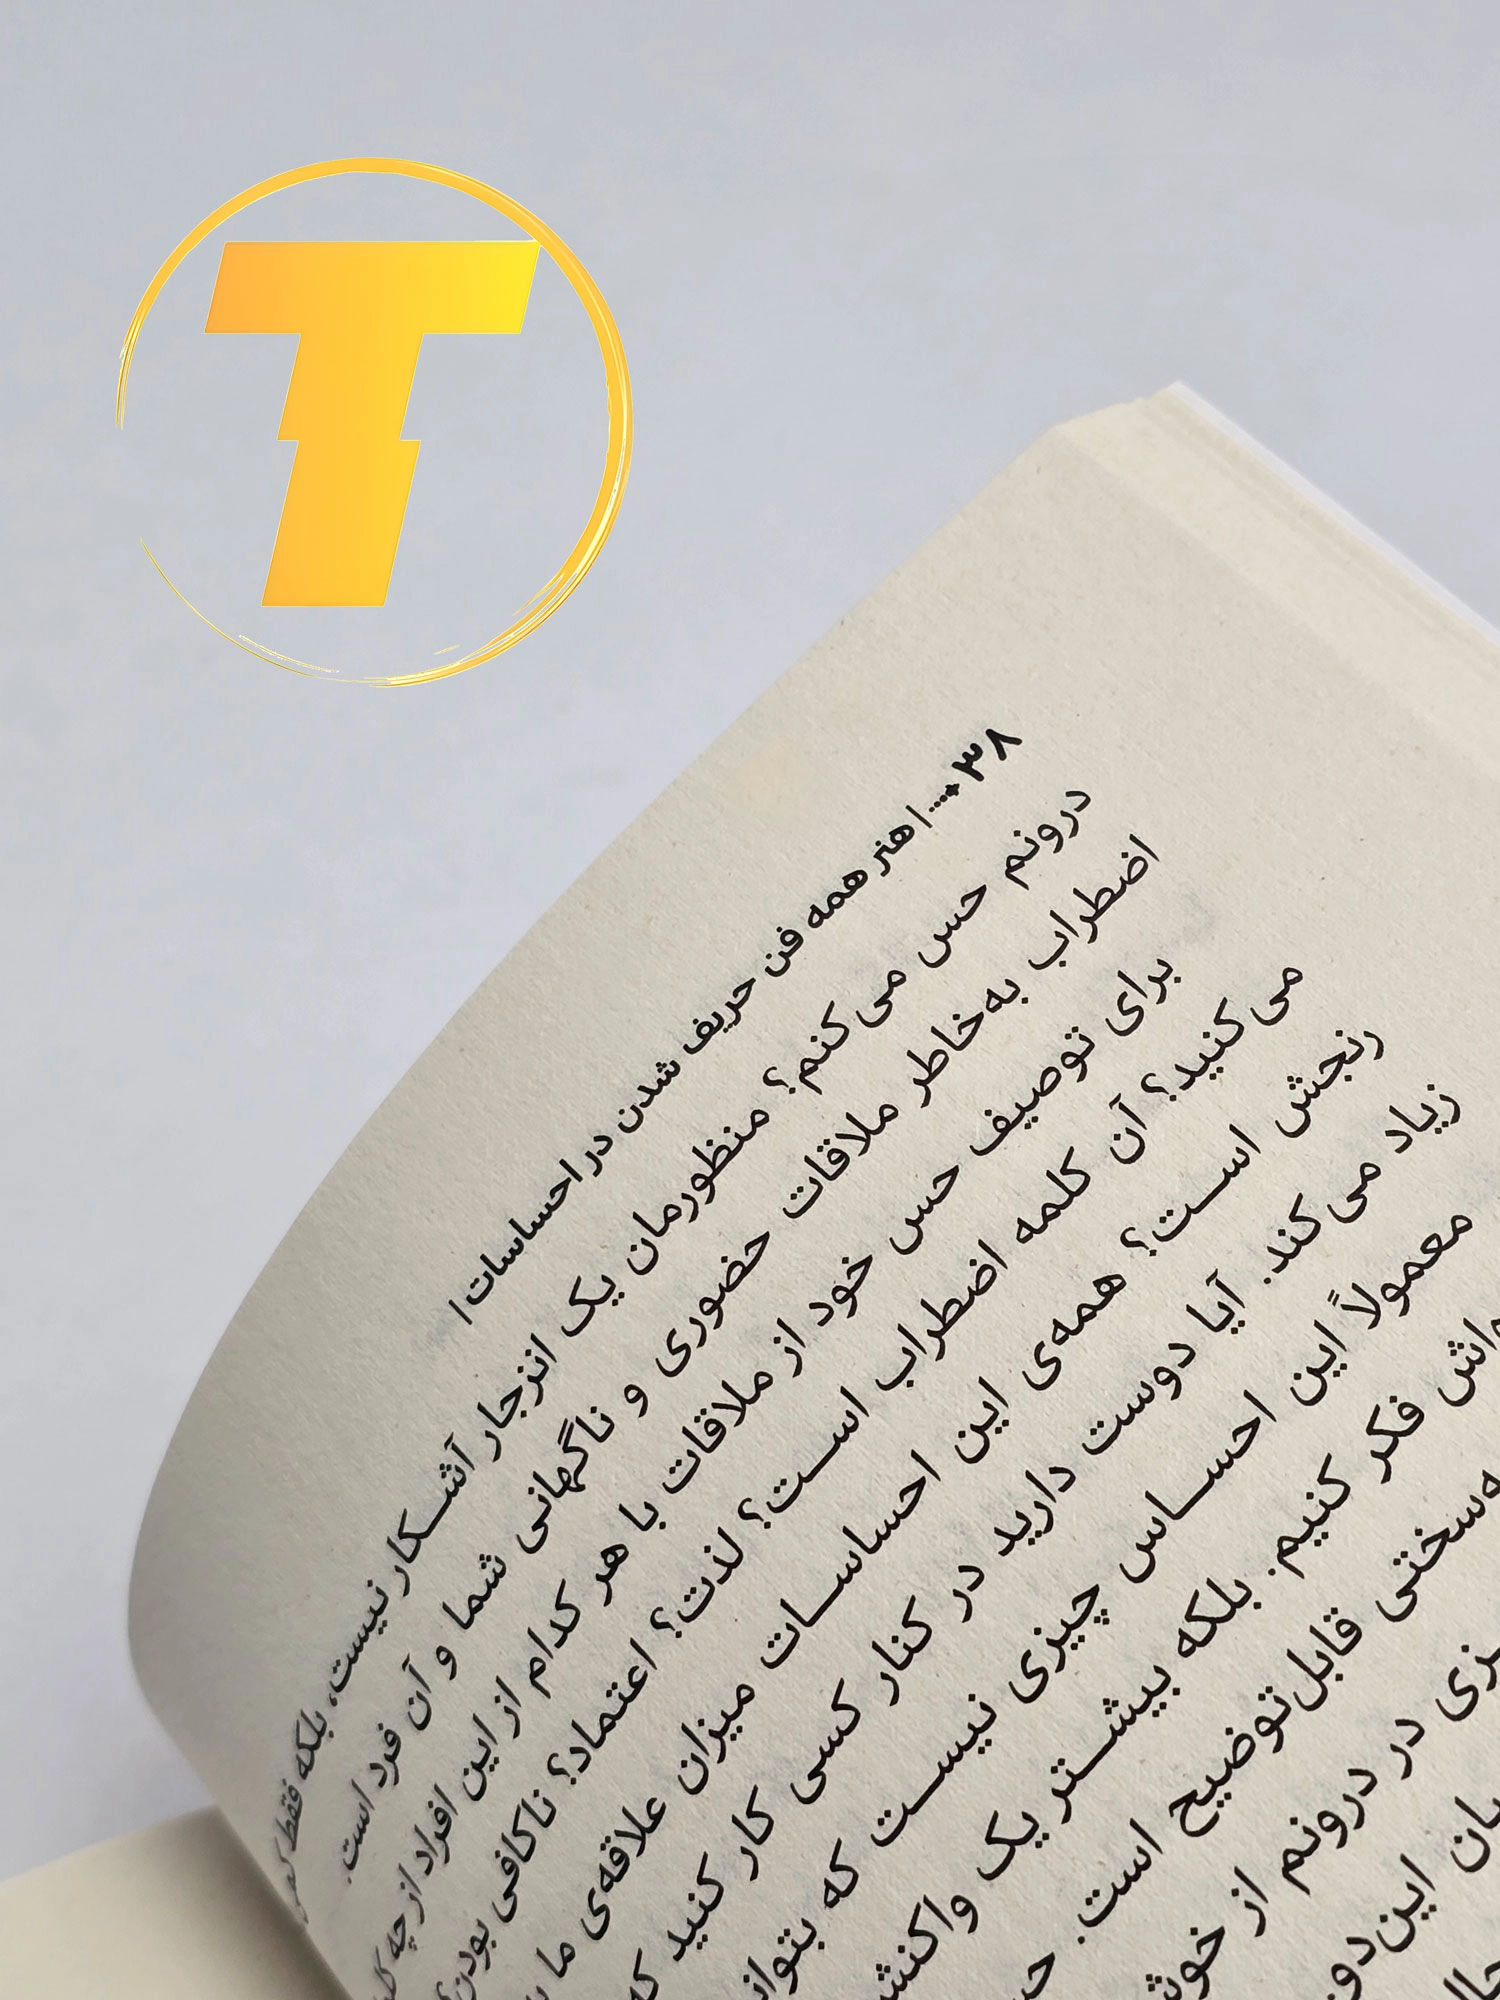 T
۳۸ .... | هنر همه فن حریف شدن در احساسات |
درونم حس می‌کنم؟ منظورمان یک انزجار آشکار نیست، بلکه فقط کمی
اضطراب به‌خاطر ملاقات حضوری و ناگهانی شما و آن فرد است.
برای توصیف حس خود از ملاقات با هر کدام از این افراد از چه
می‌کنید؟ آن کلمه اضطراب است؟ لذت؟ اعتماد؟ ناکافی بودن؟
رنجش است؟ همه‌ی این احساسات میزان علاقه‌ی ما
زیاد می‌کند. آیا دوست دارید در کنار کسی کار کنید که
معمولاً این احساس چیزی نیست که
فکر کنیم. بلکه بیشتر یک
قابل‌توضیح است.
در درونم از